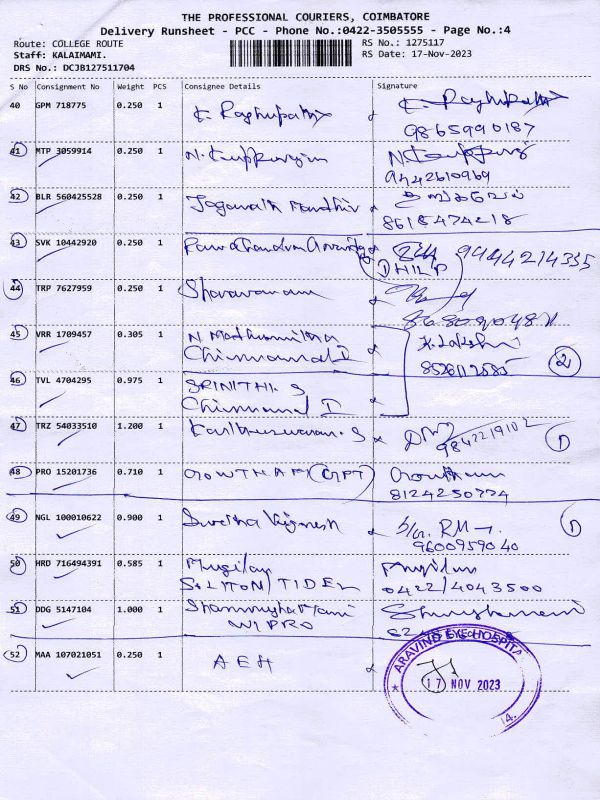 THE PROFESSIONAL COURIERS, COIMBATORE
Delivery Runsheet - PCC - Phone No.:0422-3505555 - Page No.:4
Route: COLLEGE ROUTE
Staff: KALAIMAMI.
DRS No.: DCJB127511704
RS No.: 1275117
RS Date: 17-Nov-2023
S No Consignment No Weight PCS Consignee Details Signature
40 GPM 718775 0.250 1 K. Raghupathy K. Raghupathy
9865990187
41 MTP 3059914 0.250 1 N. N.
9442610969
42 BLR 560425528 0.250 1 Jaganath
8618474218
43 SVK 10442920 0.250 1 9444214335
DHILP
44 TRP 7627959 0.250 1 Sharavanan
45 VRR 1709457 0.305 1 N
Chinnamal I 2
46 TVL 4704295 0.975 1 SRINITHI. S
Chinnamal I
47 TRZ 54033510 1.200 1 9842219102 1
48 PRO 15201736 0.710 1 GOWTHAM (GPT) Gowtham
8124250774
49 NGL 100010622 0.900 1 Swetha Vignesh 1
9600959040
50 HRD 716494391 0.585 1 Mugilan Mugilan
SOLITON/TIDEL 0422/4043500
51 DDG 5147104 1.000 1 Shanmugha Mani
WIPRO
52 MAA 107021051 0.250 1 AEH
ARAVIND EYE HOSPITAL
17 NOV 2023
14.